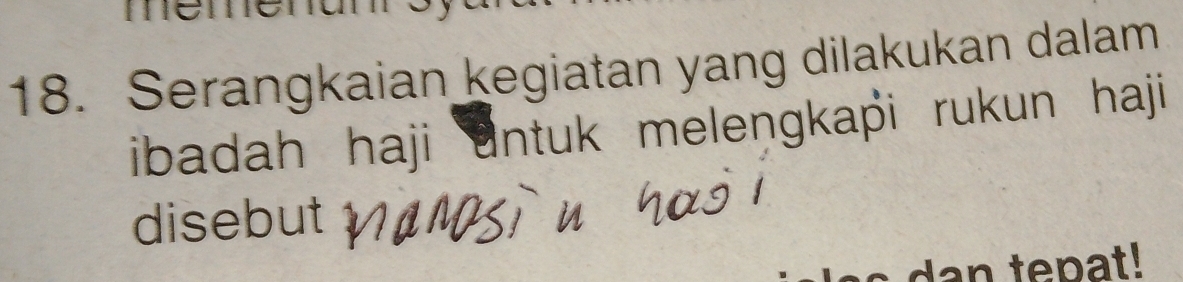 18. Serangkaian kegiatan yang dilakukan dalam
ibadah haji untuk melengkapi rukun haji
disebut haji
dan tepat!